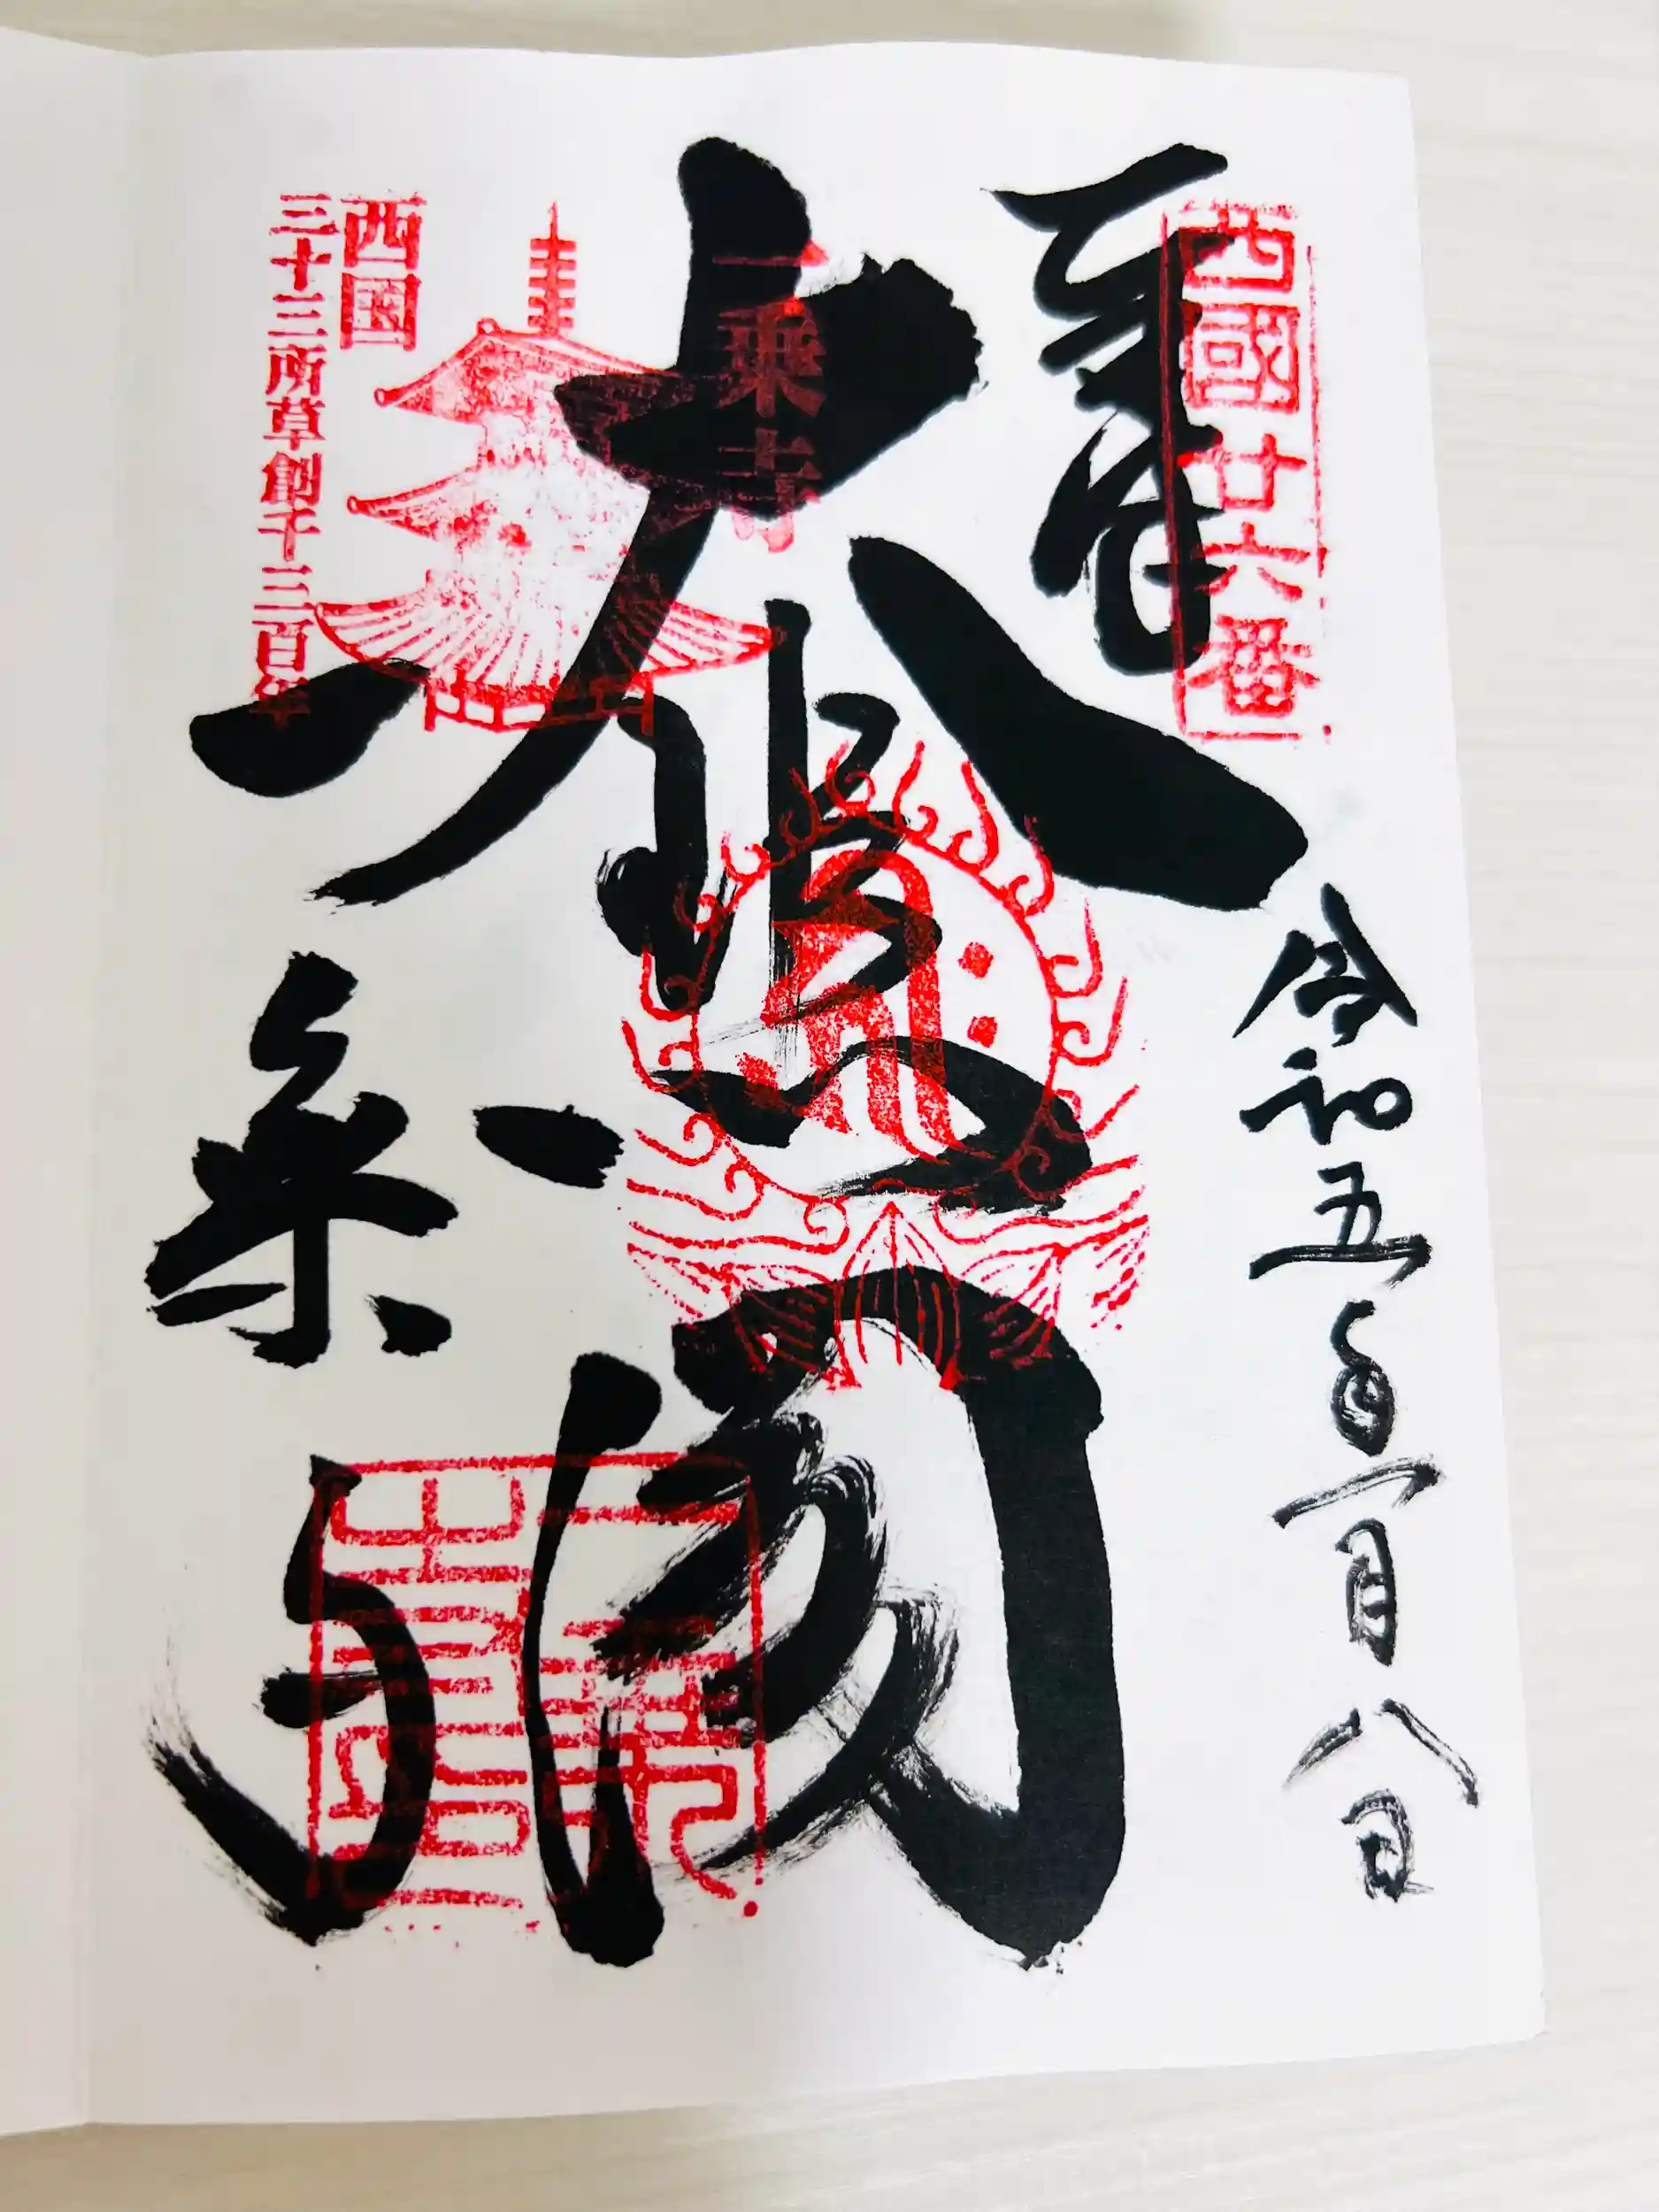 西國廿六番
奉拝
令和五年一月八日
大悲閣
一乗寺
西国
三十三所草創千三百年
一乗寺